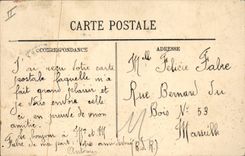 CARTE POSTALE
CORRESPONDANCE
J'ai reçu votre carte
postale laquelle m'a
fait grand plaisir et
je vois envoi celle
ci en preuve de mon
amitié.
le bonjour à Mr et M
Fabre de ma part. Votre ami
ADRESSE
Mlle Félicie Fabre
Rue Bernard Du
Bois N° 59
Marseille
(B.d.R)